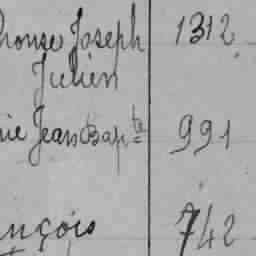 honse Joseph 1312
Julien
rie Jean Bapte 991
nçois 742